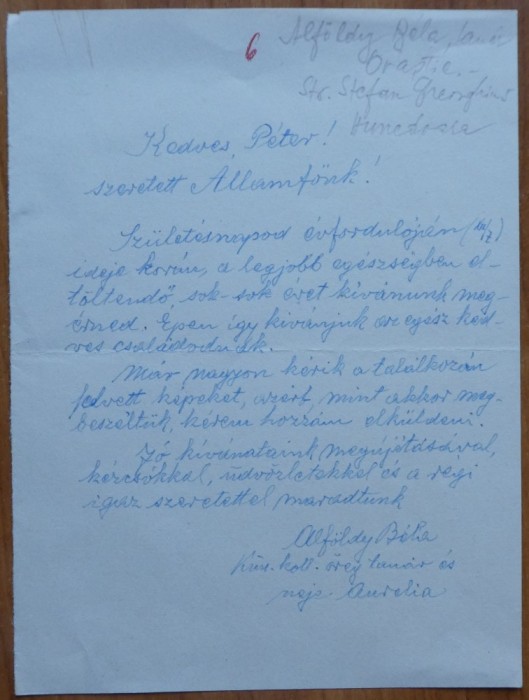 6
Alföldy Béla, tanár
Orăştie. –
Str. Stefan Gheorghiu
Hunedoara
Kedves Péter!
szeretett Államfőnk!
Születésnapod évfordulóján
ideje korán, a legjobb egészségben el-
töltendő, sok-sok évet kívánunk meg-
érned. Épen így kivánjuk az egész ked-
ves családodnak.
Már nagyon kérik a találkozón
felvett képeket, azért, mint akkor meg-
beszéltük, kérem hozzám elküldeni.
Jó kívánataink megújításával,
kézcsókkal, üdvözletekkel és a régi
igaz szeretettel maradtunk
Alföldy Béla
Kún. koll. öreg tanár és
neje Aurelia